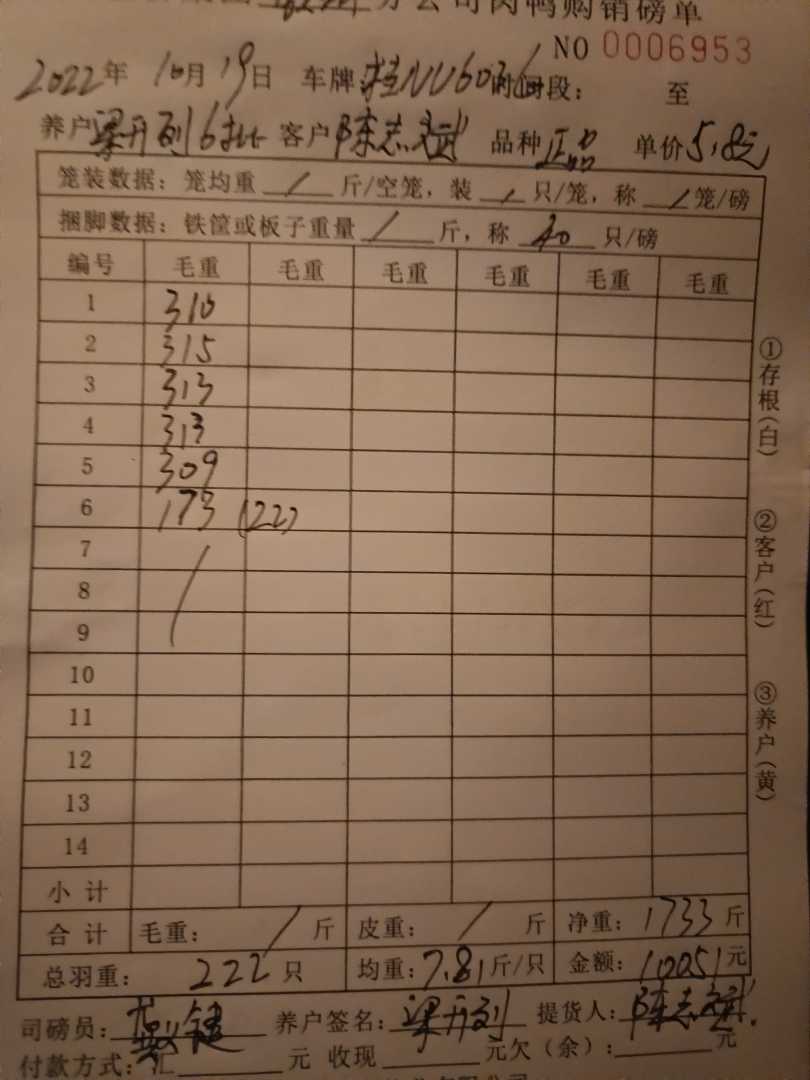 分公司肉鸭购销磅单
NO 0006953
2022年 10月 19日 车牌:桂NU6036 时间段: 至
养户 梁丹列6批 客户 陈志斌 品种 正品 单价5.8元
笼装数据: 笼均重 / 斤/空笼, 装 / 只/笼, 称 / 笼/磅
捆脚数据: 铁筐或板子重量 / 斤, 称 40 只/磅
编号 毛重 毛重 毛重 毛重 毛重 毛重
1 310
2 315
3 313
4 313
5 309
6 173 (22)
7
8
9
10
11
12
13
14
小计
合计 毛重: / 斤 皮重: / 斤 净重: 1733 斤
总羽重: 222 只 均重: 7.81斤/只 金额: 10051元
司磅员: 健 养户签名: 梁丹列 提货人: 陈志斌
付款方式: 汇 元 收现 元欠(余): 元
①存根(白)
②客户(红)
③养户(黄)